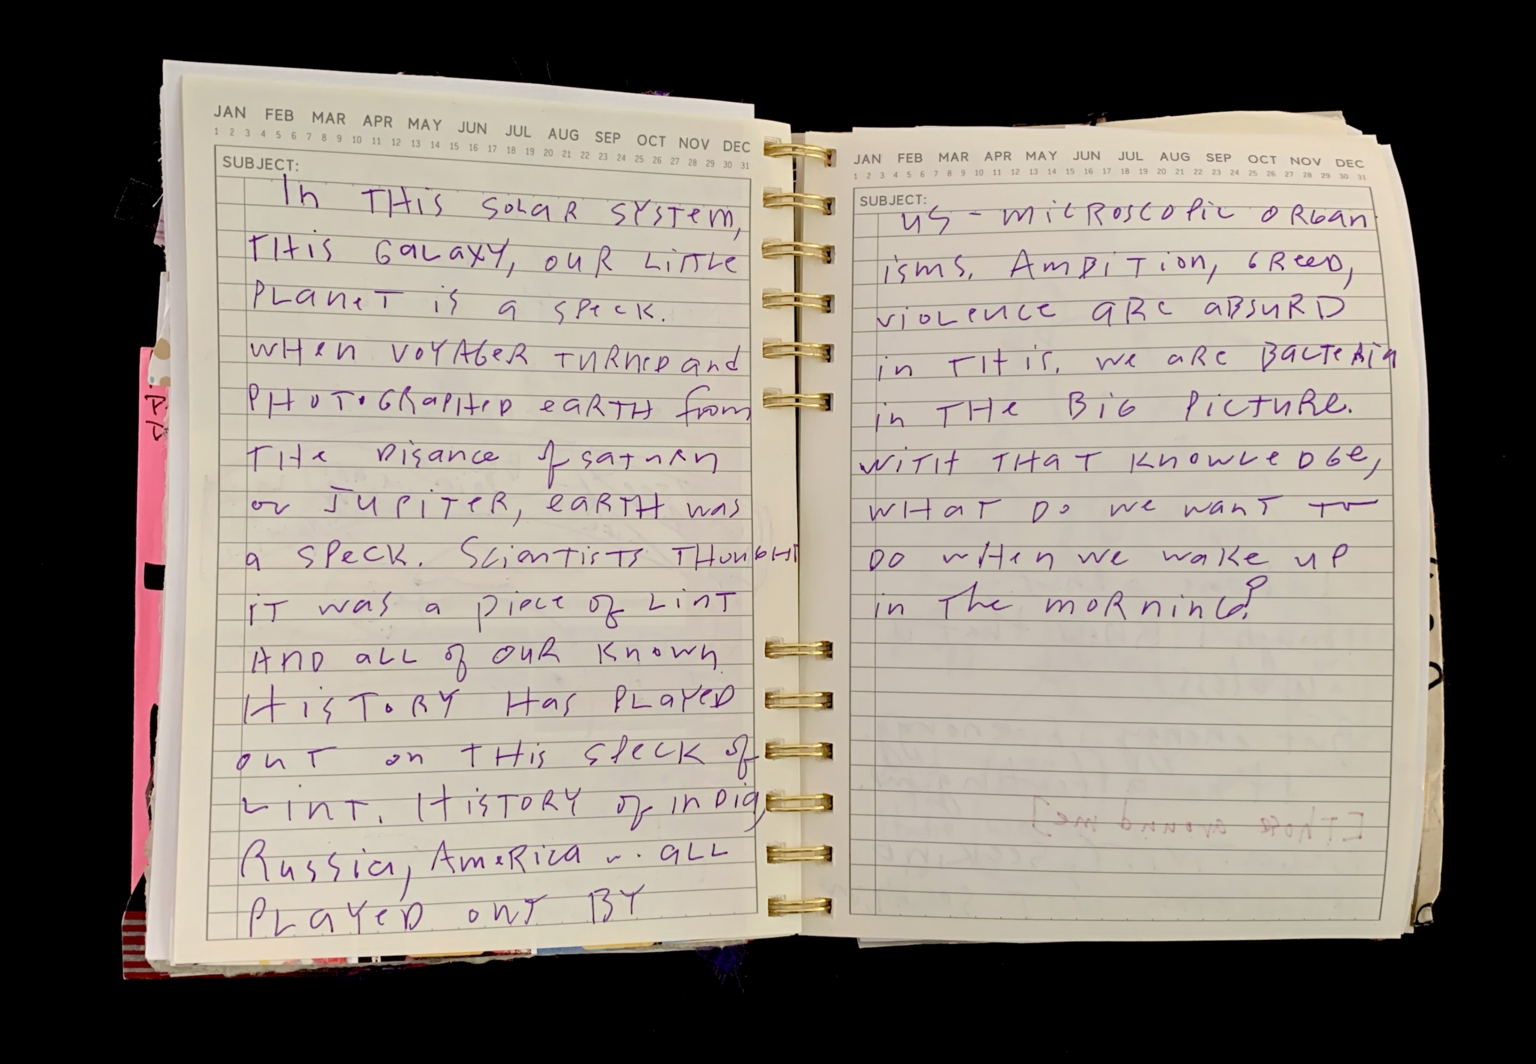 JAN FEB MAR APR MAY JUN JUL AUG SEP OCT NOV DEC
1 2 3 4 5 6 7 8 9 10 11 12 13 14 15 16 17 18 19 20 21 22 23 24 25 26 27 28 29 30 31
SUBJECT:
In THis SOLAR SYSTEM,
THis GALAXY, OUR LiTTLe
PLANeT is a SPeCK.
WHen VOYAGER TURNED and
PHOTOGRAPHED eARTH from
THe DisANCe of SATURN
or JUPiTER, eARTH was
a SPeCK. SCienTisTs THOUGHT
iT was a piece of LinT
AND aLL of OUR KNOWN
HisTORY HAs PLAYeD
OUT on THis SPeCK of
LinT. HisTORY of inDia,
RUSSia, AMeRiCA ... aLL
PLAYED OUT BY
JAN FEB MAR APR MAY JUN JUL AUG SEP OCT NOV DEC
1 2 3 4 5 6 7 8 9 10 11 12 13 14 15 16 17 18 19 20 21 22 23 24 25 26 27 28 29 30 31
SUBJECT:
US - MiCROSCOPiC ORGAN
isMS. AMBiTion, GReeD,
VioLenCe ARe ABSURD
in THis. We ARe BACTeRiA
in THe BiG PiCTURe.
WiTH THAT KNOWLeDGe,
WHAT DO We WANT TO
DO WHen We WAKe UP
in The MORNinG?
[Those around me]